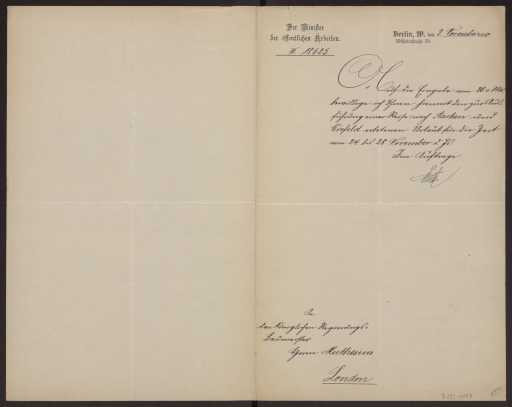 Der Minister
der öffentlichen Arbeiten.
Berlin, W. den 2. November
Wilhelmstraße
Auf die Eingabe vom 26. v. Mts.
bewillige ich Ihnen hiermit den zur Aus-
führung einer Reise nach Aachen und
Crefeld erbetenen Urlaub für die Zeit
vom 24. bis 28. November d. Js.
Im Auftrage
An
den Königlichen Regierungs-
Baumeister
Herrn Muthesius
London